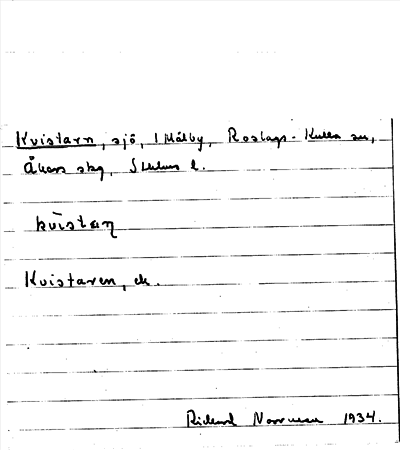 Kvistarn, sjö, 1 Målby, Roslags-Kulla sn,
Åkers skg, Sthlms l.
kvistaɳ
Kvistaren, ek.
Rickard Norrman 1934.